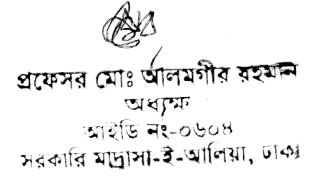 প্রফেসর মোঃ আলমগীর রহমান
অধ্যক্ষ
আইডি নং-০৬০৪
সরকারি মাদ্রাসা-ই-আলিয়া, ঢাকা